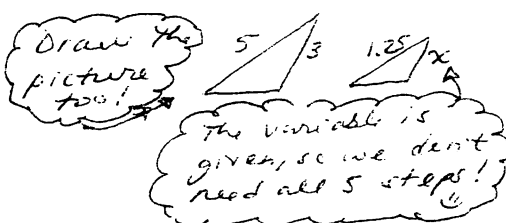 Draw the
picture
too!
5
3
1.25
x
The variable is
given, so we don't
need all 5 steps!